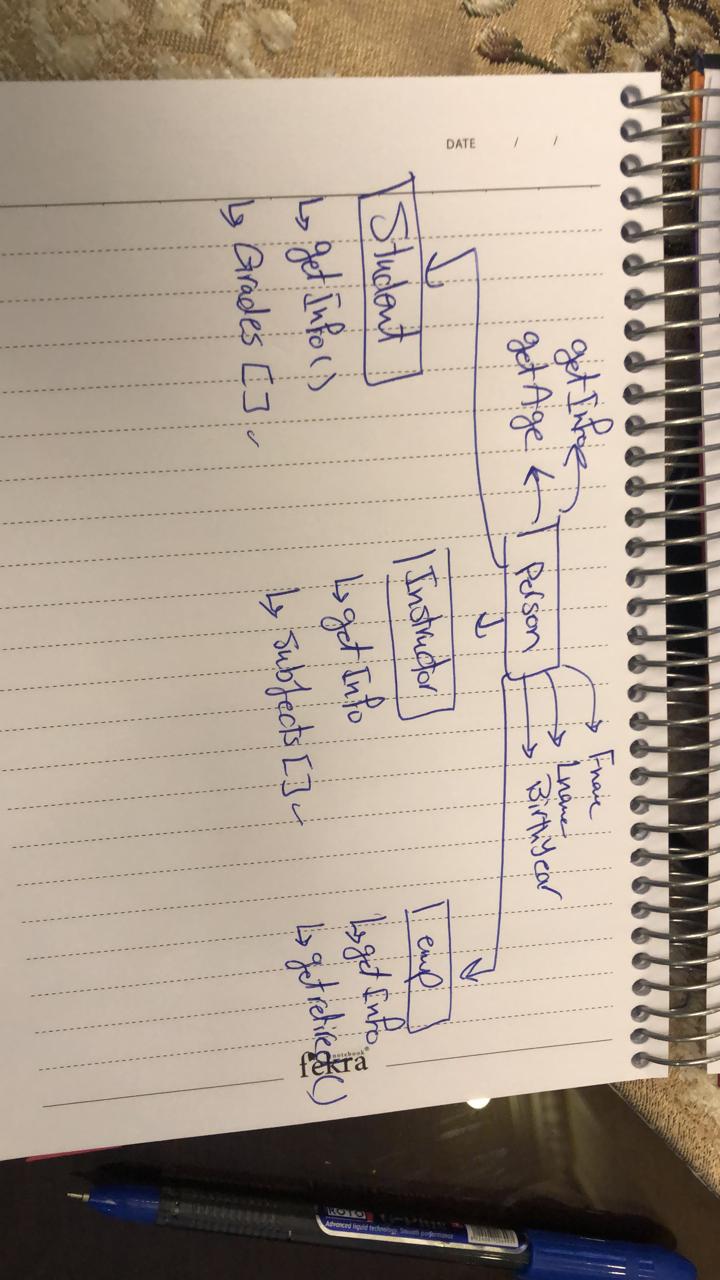 getInfo
getAge
Person
Fname
Lname
BirthYear
Student
get Info()
Grades []
Instructor
get Info
subjects []
emp
get Info
getretire()
DATE / /
fekra